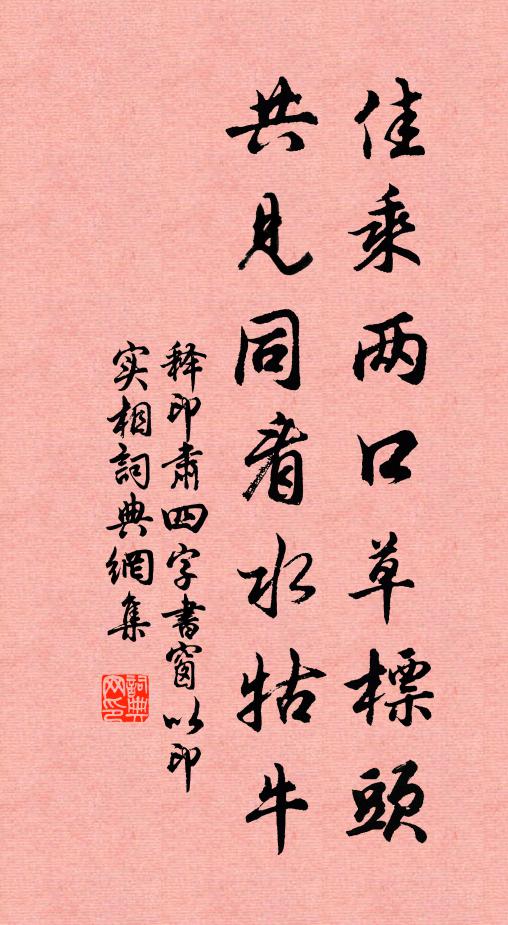 佳乘两口草標頭
共見同看水牯牛
释印肃四字書窗以印
实相詞典網集
詞典网印